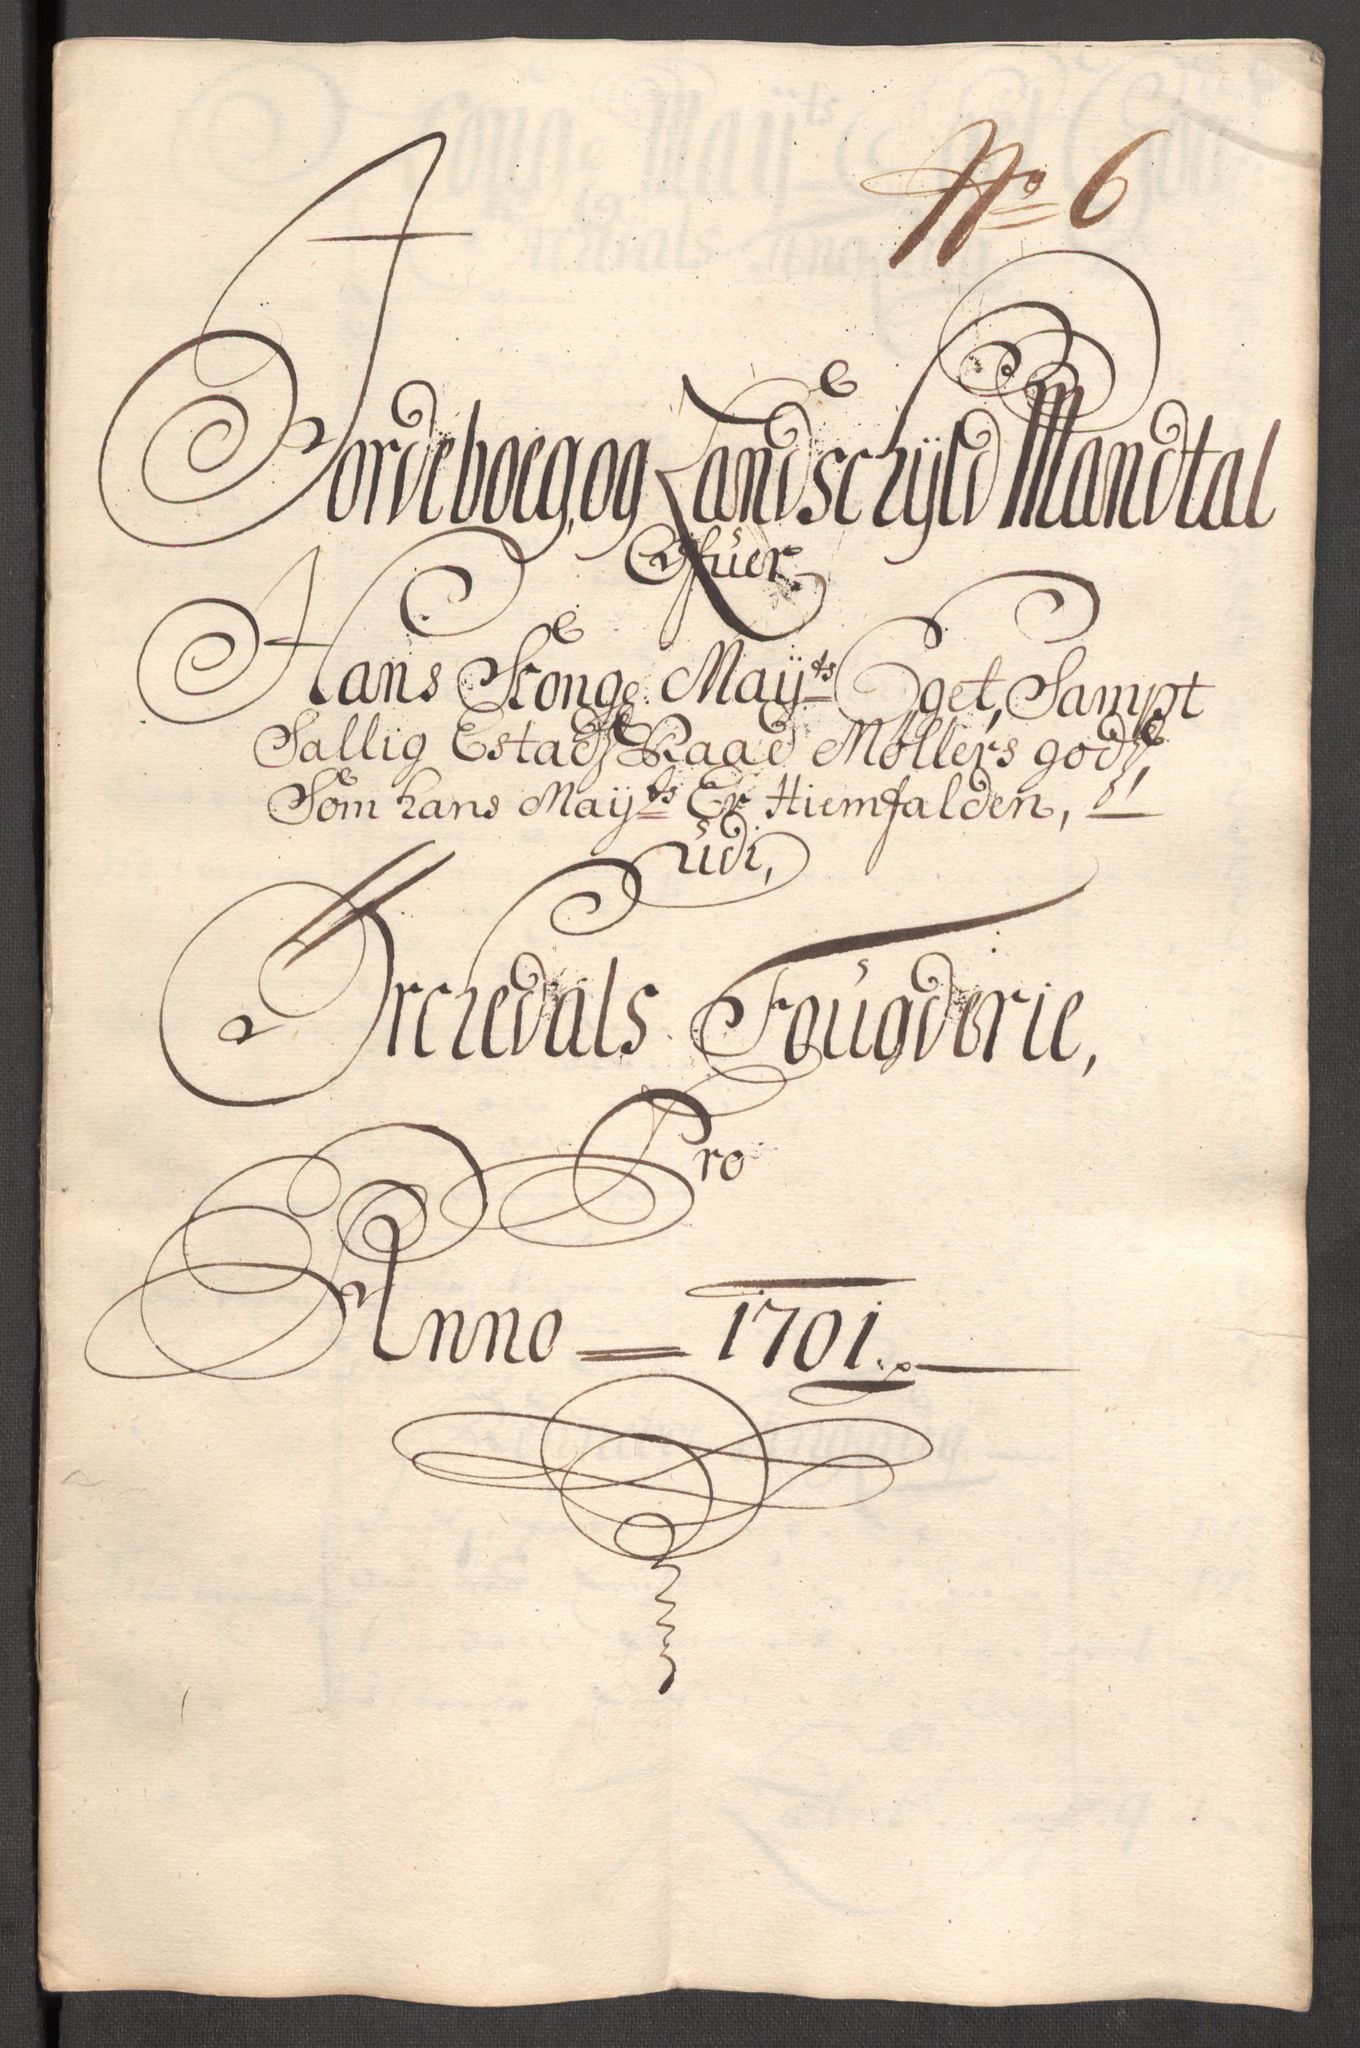 No 6
Jordeboeg, og Landschyld Mandtal
Ofuer
Hans Konge: Mayts Eget, Sampt
Sallig Estads Raad Møllers gods,
Som hans Mayts Er Hiemfalden,
udi,
Orchedals Fougderie,
Pro
Anno 1701.